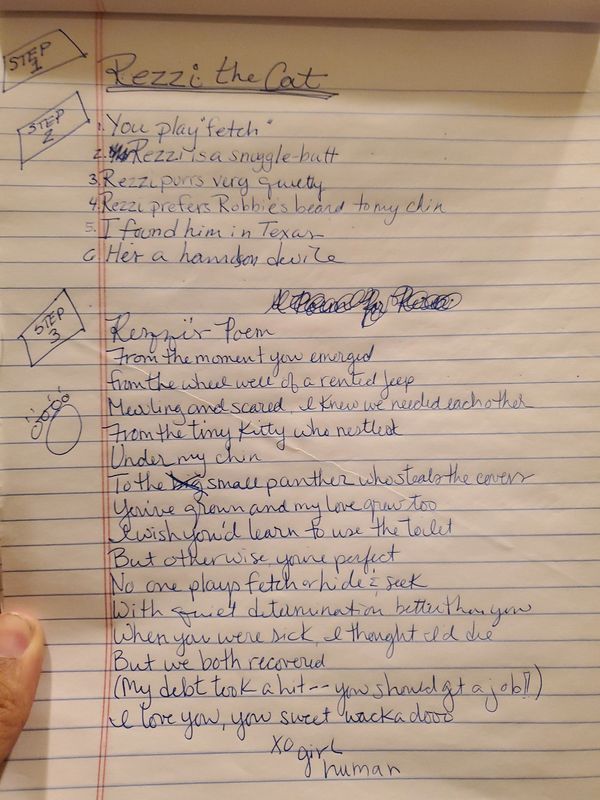 STEP 1
Rezzi the Cat
STEP 2
1. You play "fetch"
2. Rezzi is a snuggle-butt
3. Rezzi purrs very quietly
4. Rezzi prefers Robbie's beard to my chin
5. I found him in Texas
6. He's a handsom devile
STEP 3
Rezzi's Poem
From the moment you emerged
from the wheel well of a rented Jeep
Mewling and scared, I knew we needed each other
From the tiny Kitty who nestled
Under my chin
To the small panther who steals the covers
You've grown and my love grew too
I wish you'd learn to use the toilet
But otherwise, you're perfect
No one plays fetch or hide & seek
With quiet determination better than you
When you were sick, I thought I'd die
But we both recovered
(My debt took a hit -- you should get a job!!)
I love you, you sweet wackadooo
XO girl
human